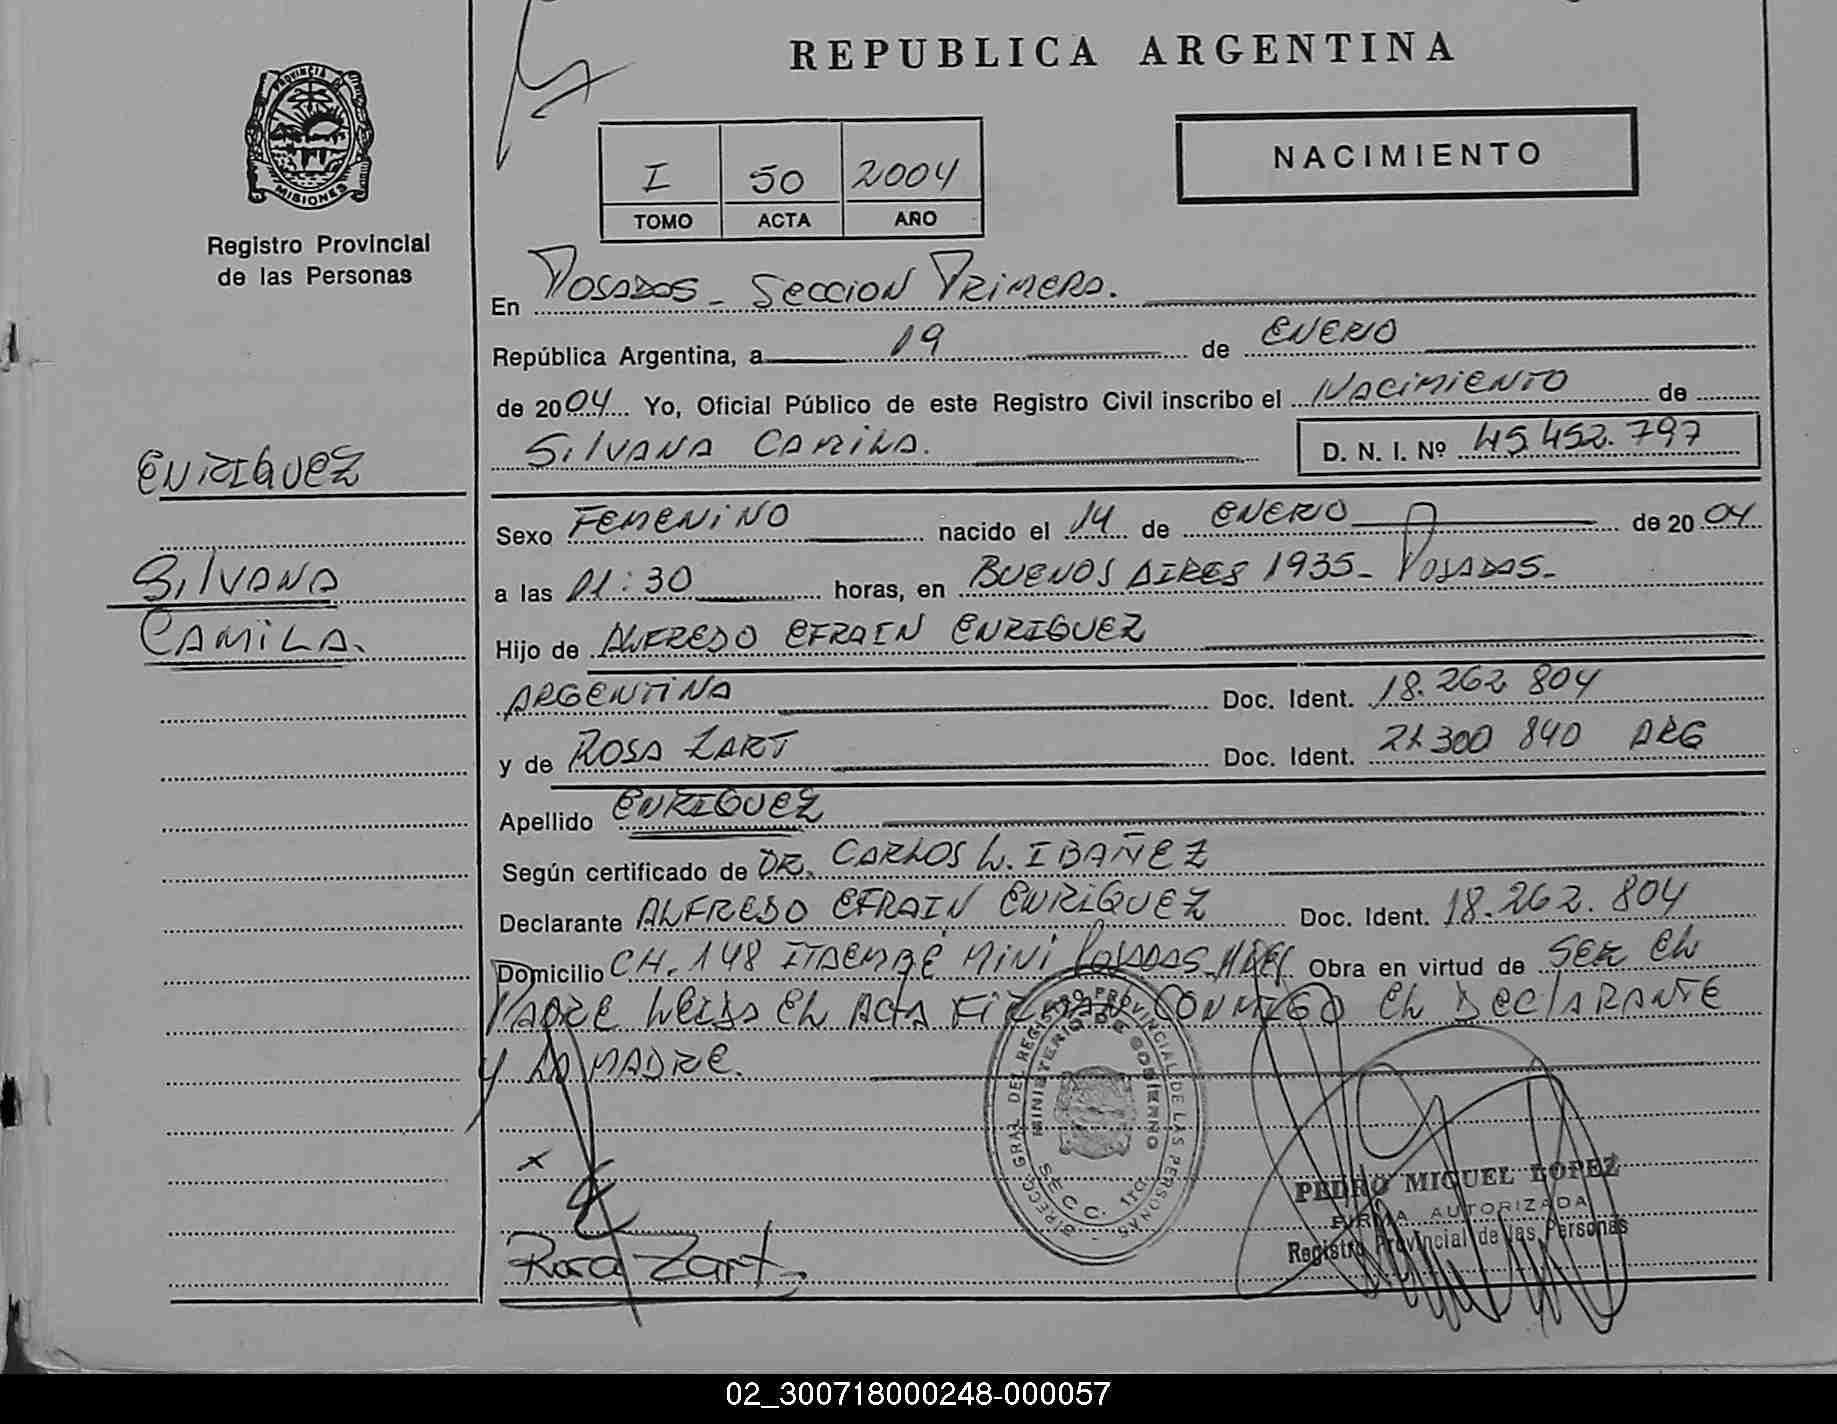 REPUBLICA ARGENTINA
PROVINCIA DE MISIONES
Registro Provincial
de las Personas
I 50 2004
TOMO ACTA AÑO
NACIMIENTO
En Posadas - Seccion Primera.
República Argentina, a 19 de ENERO
de 2004 Yo, Oficial Público de este Registro Civil inscribo el Nacimiento de
Silvana Camila. D. N. I. Nº 45.452.797
ENRIQUEZ
Silvana
Camila.
Sexo Femenino nacido el 14 de ENERO de 2004
a las 01:30 horas, en Buenos Aires 1935 - Posadas -
Hijo de Alfredo Efrain Enriquez
Argentina Doc. Ident. 18.262 804
y de Rosa Zart Doc. Ident. 21 300 840 ARG
Apellido Enriquez
Según certificado de DR. Carlos L. Ibañez
Declarante Alfredo Efrain Enriquez Doc. Ident. 18.262.804
Domicilio CH. 148 Itaembé Mini Posadas Obra en virtud de ser el
Padre Leida el acta firman conmigo el declarante
y la madre.
x
Rosa Zart
DIRECC. GRAL. DEL REGISTRO PROVINCIAL DE LAS PERSONAS
MINISTERIO DE GOBIERNO
SECC. 1ra.
PEDRO MIGUEL LOPEZ
FIRMA AUTORIZADA
Registro Provincial de las Personas
02_300718000248-000057